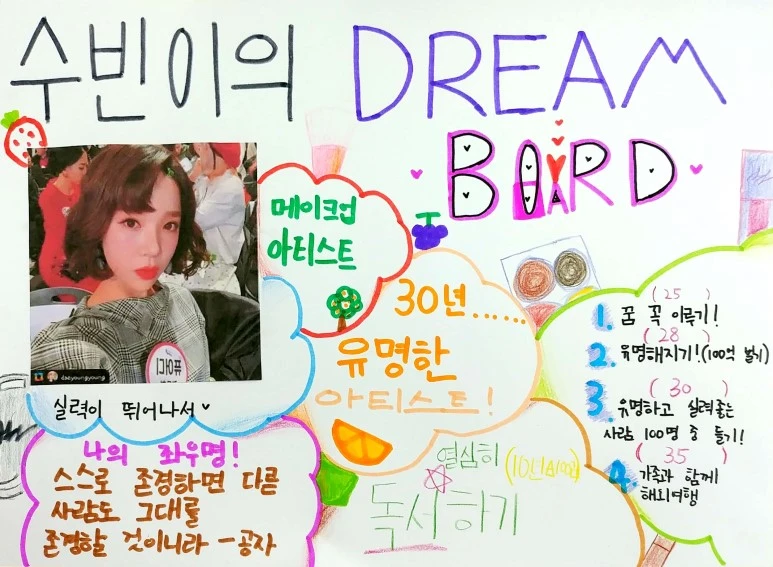 수빈이의 DREAM
BOARD
메이크업
아티스트
30년......
유명한
아티스트!
daeyoungyoung
실력이 뛰어나서
나의 좌우명!
스스로 존경하면 다른
사람도 그대를
존경할 것이니라 - 공자
열심히
독서하기
(25)
1. 꿈 꼭 이루기!
(28)
2. 유명해지기! (100억 벌기)
(30)
3. 유명하고 실력좋은
사람 100명 중 들기!
(35)
4. 가족과 함께
해외여행